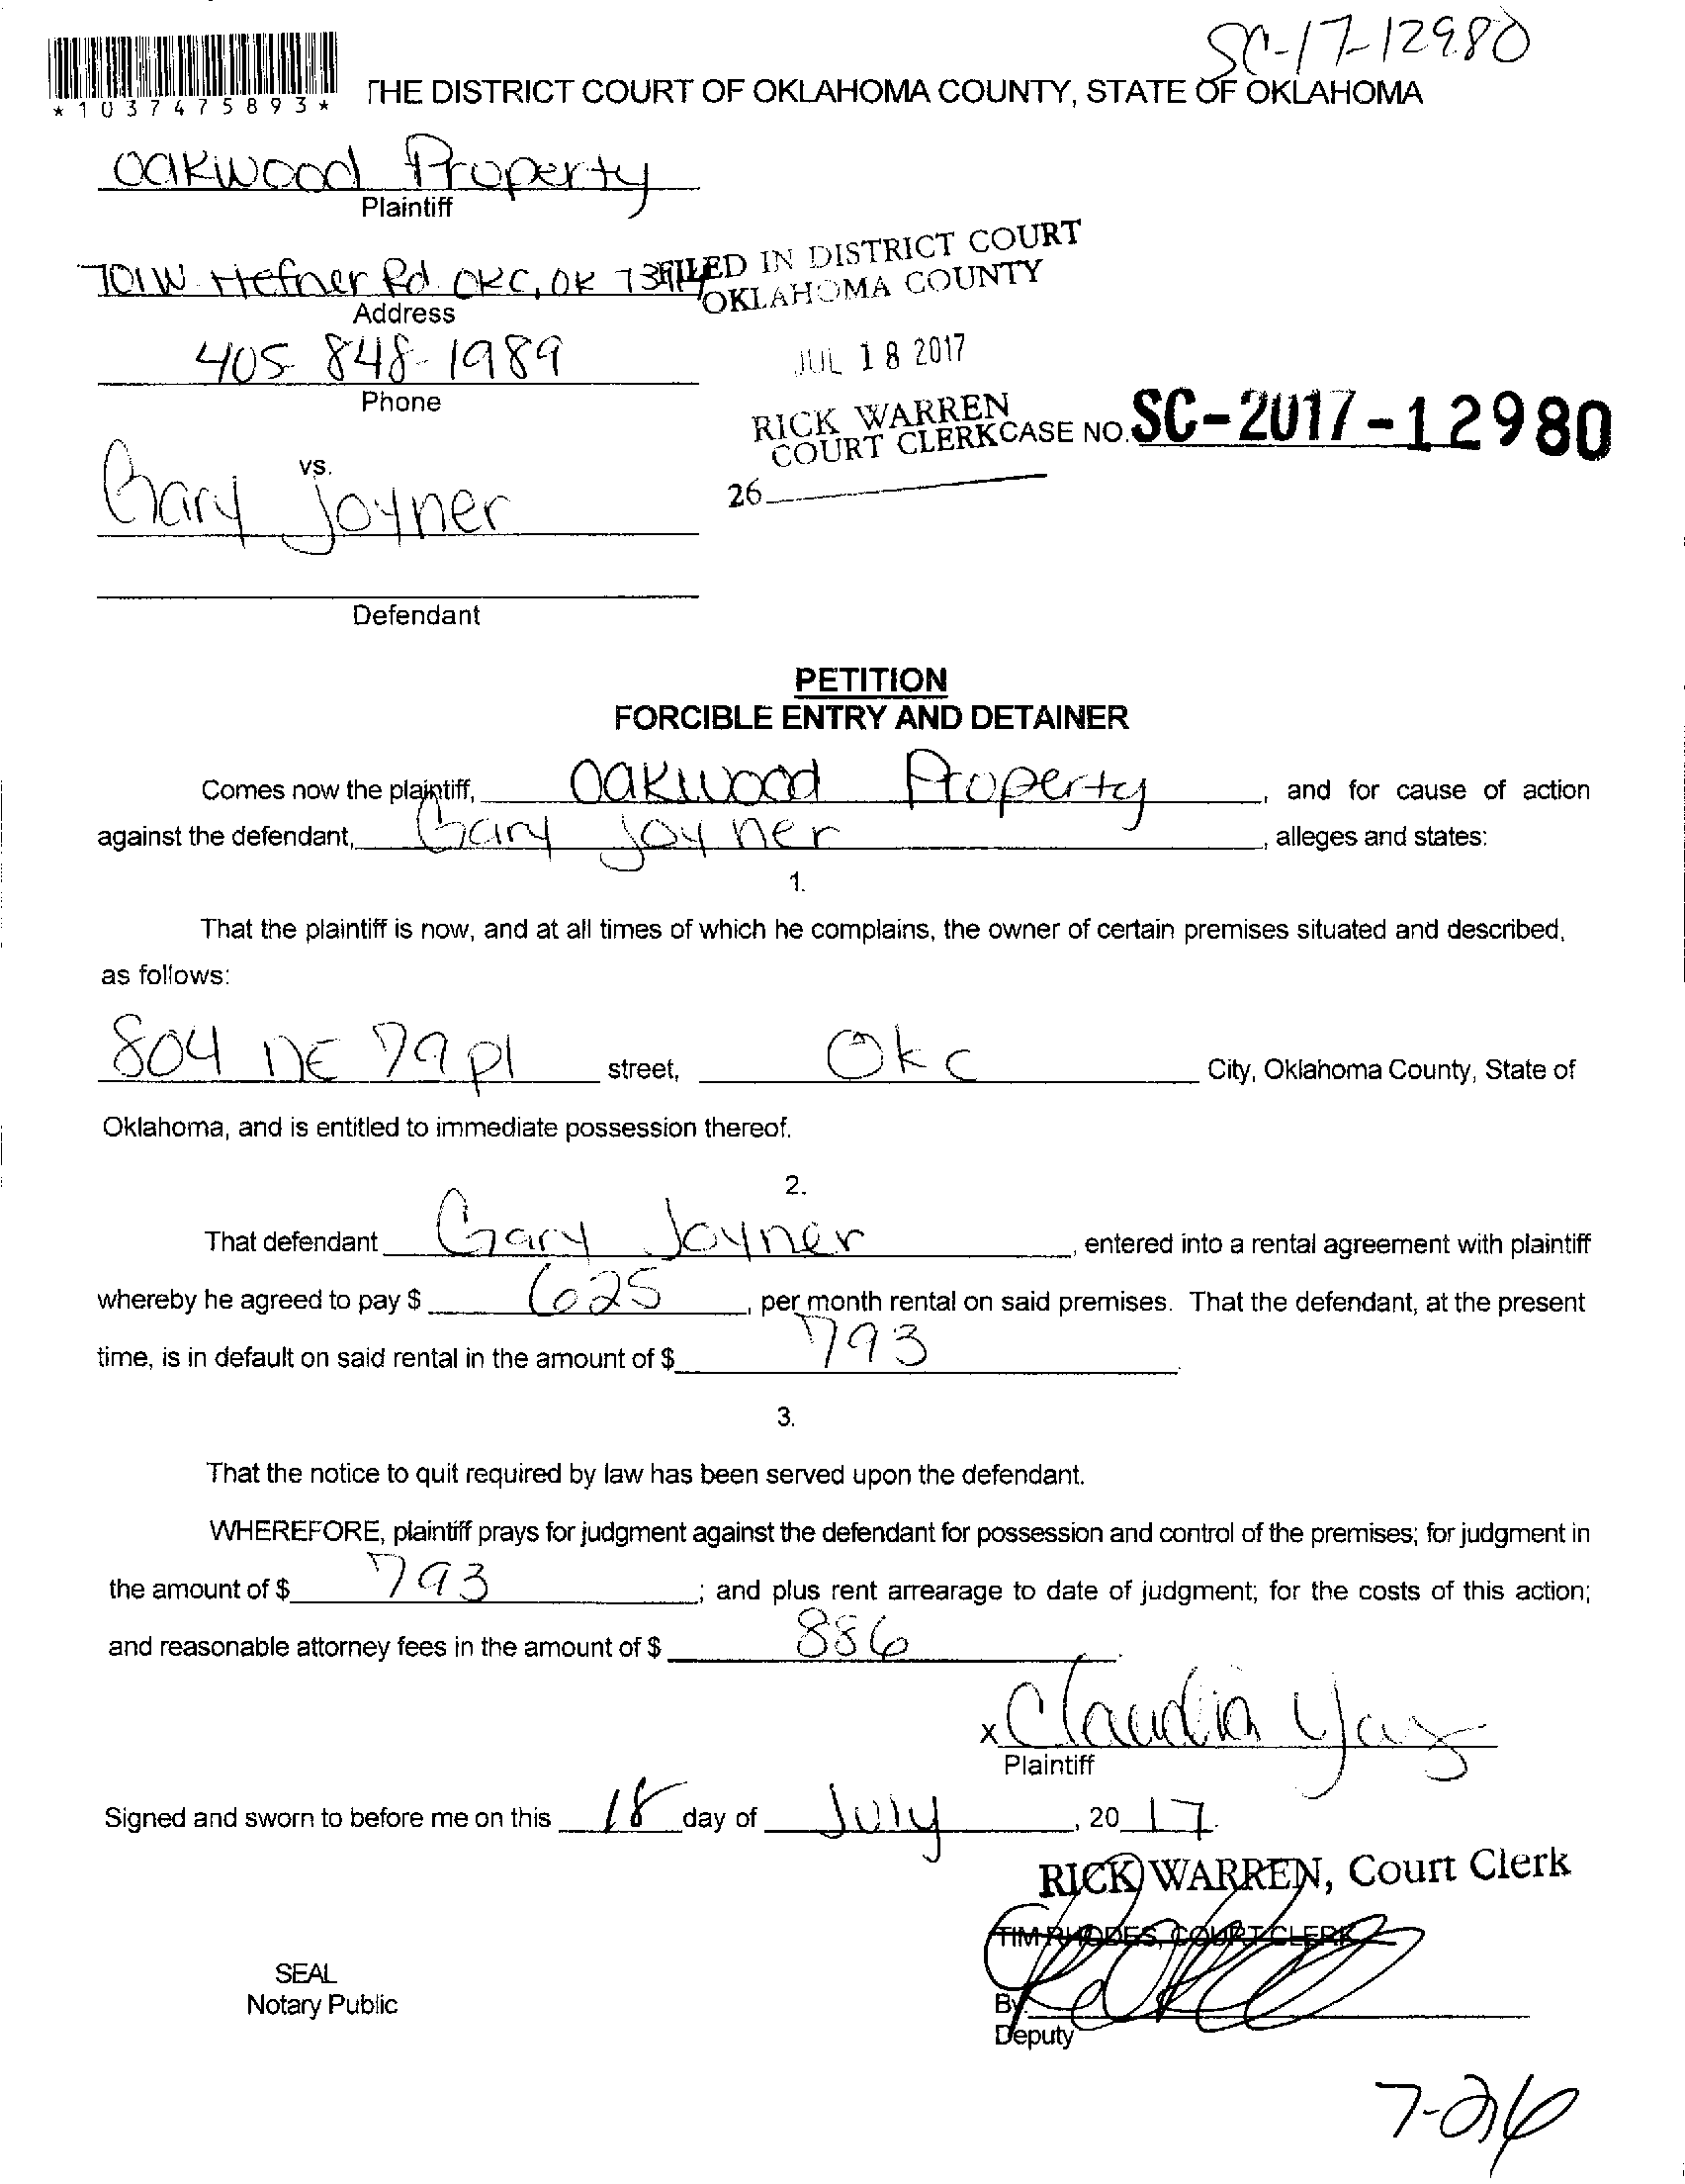 SC-17-12980
*1037475893*
THE DISTRICT COURT OF OKLAHOMA COUNTY, STATE OF OKLAHOMA
Oakwood Property
Plaintiff
701 W Hefner Rd. OKC, OK
FILED IN DISTRICT COURT
OKLAHOMA COUNTY
Address
405-848-1989
Phone
JUL 18 2017
RICK WARREN
COURT CLERK
CASE NO. SC-2017-12980
26
vs.
Gary Joyner
Defendant
PETITION
FORCIBLE ENTRY AND DETAINER
Comes now the plaintiff, Oakwood Property, and for cause of action
against the defendant, Gary Joyner, alleges and states:
1.
That the plaintiff is now, and at all times of which he complains, the owner of certain premises situated and described,
as follows:
804 NE 79 pl street, Okc City, Oklahoma County, State of
Oklahoma, and is entitled to immediate possession thereof.
2.
That defendant Gary Joyner, entered into a rental agreement with plaintiff
whereby he agreed to pay $ 625, per month rental on said premises. That the defendant, at the present
time, is in default on said rental in the amount of $ 793.
3.
That the notice to quit required by law has been served upon the defendant.
WHEREFORE, plaintiff prays for judgment against the defendant for possession and control of the premises; for judgment in
the amount of $ 793; and plus rent arrearage to date of judgment; for the costs of this action;
and reasonable attorney fees in the amount of $ 886.
x Claudia
Plaintiff
Signed and sworn to before me on this 18 day of July, 20 17.
RICK WARREN, Court Clerk
TIM RHODES, COURT CLERK
SEAL
Notary Public
By
Deputy
7-26